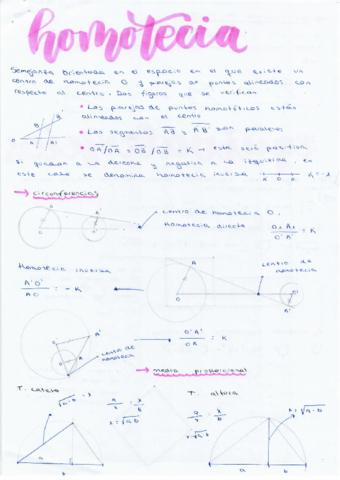 homotecia
Semejanza Orientada en el espacio en el que existe un
centro de homotecia O y parejas de puntos alineados con
respecto al centro. Dos figuras que se verifican
• Las parejas de puntos homotéticos están
alineados con el centro
• Los segmentos AB y A'B' son paralelos
• OA'/OA = OB'/OB = K → este será positivo
si quedan a la derecha y negativo a la izquierda, en
este caso se denomina homotecia inversa
K=-1
→ circunferencias
centro de homotecia O.
Homotecia directa
O'A' = K
Homotecia inversa
A'O' / AO = -K
centro de
homotecia
O'A' / OA = K
centro de
homotecia
→ media proporcional
T. cateto
√a·b = x
a/x = x/b
x=√a·b
T. altura
a/x = x/b
x=√a·b
x=√a·b
a
b
a
b